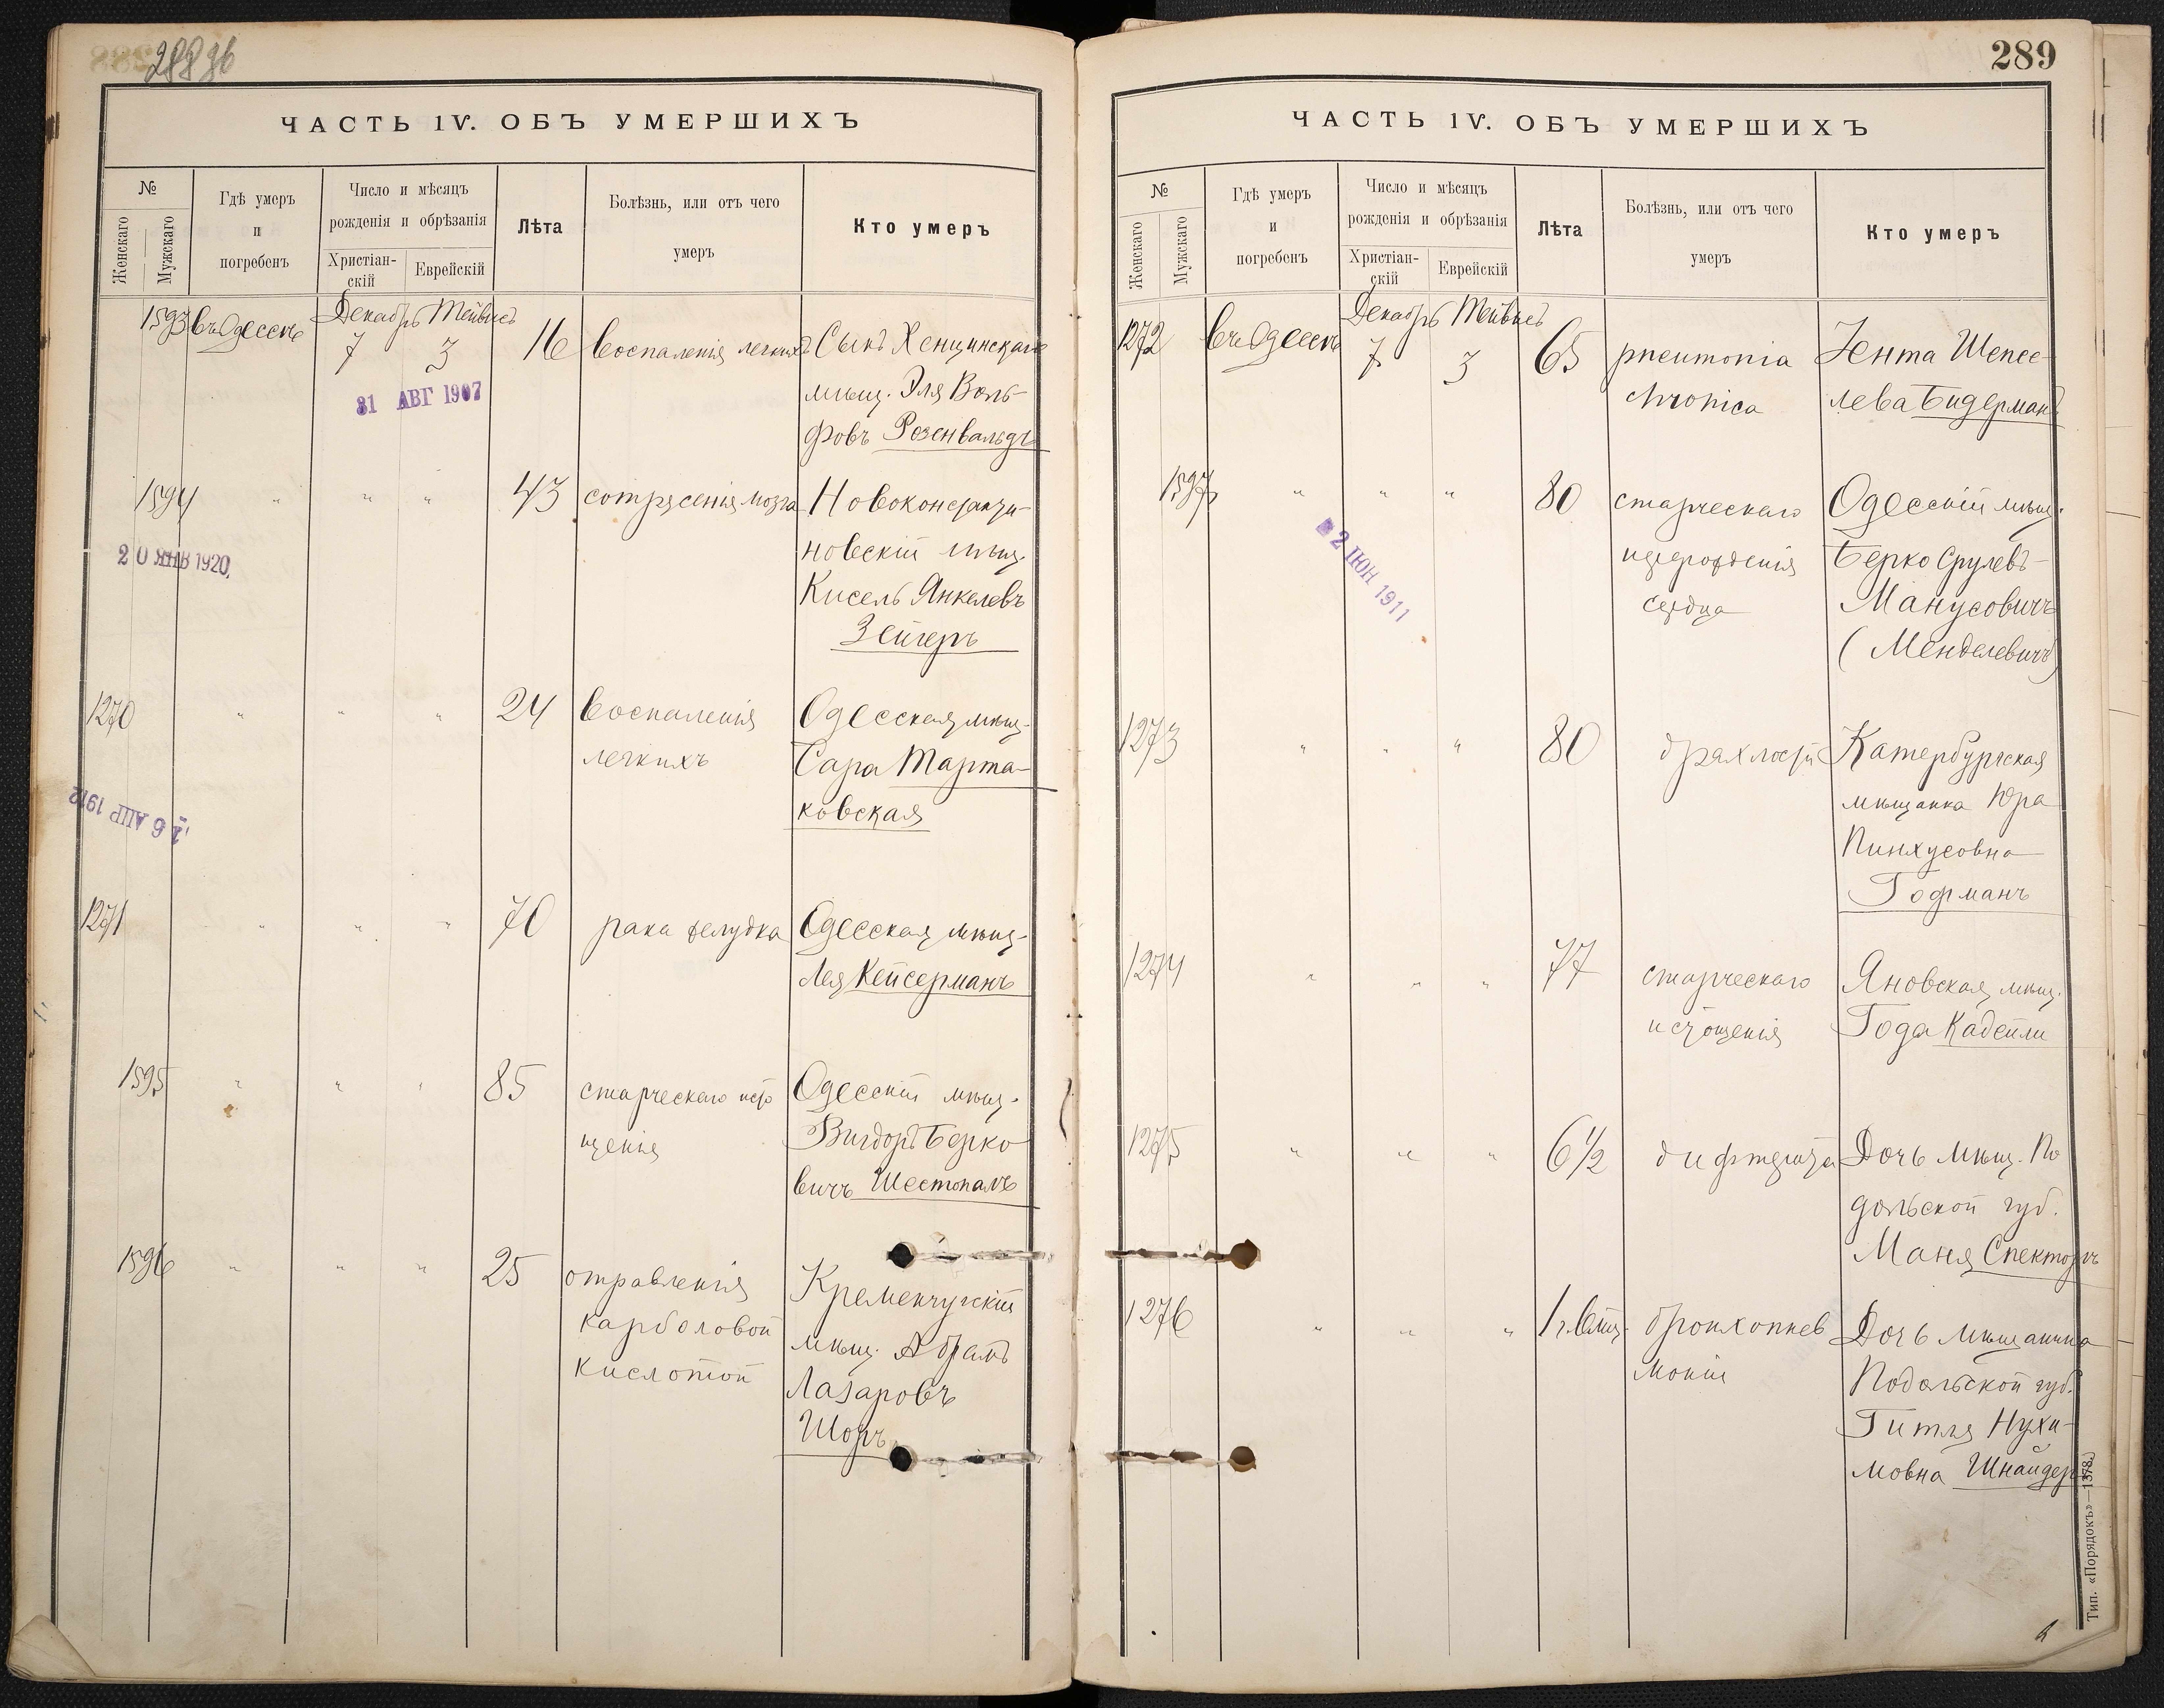 288 об
ЧАСТЬ IV. ОБЪ УМЕРШИХЪ
№
Женскаго
Мужскаго
Гдѣ умеръ
и
погребенъ
Число и мѣсяцъ
рожденія и обрѣзанія
Христіан-
скій
Еврейскій
Лѣта
Болѣзнь, или отъ чего
умеръ
Кто умеръ
Декабрь Тейвисъ
1593 въ Одессѣ 7 3 16 воспаленія легкихъ Сынъ Хенцинскаго
мѣщ. Эля Воль-
фовъ Розенвальдъ
31 АВГ 1907
1594 " " " 43 сотрясенія мозга Новоконстанти-
новскій мѣщ.
Кисель Янкелевъ
Зейгеръ
20 ЯНВ 1920
1270 " " " 24 воспаленія Одесская мѣщ.
легкихъ Сара Марта-
ковская
16 АПР 1912
1271 " " " 70 рака желудка Одесская мѣщ.
Лея Кейсерманъ
1595 " " " 85 старческаго исто Одесскій мѣщ.
щенія Вигдоръ Берко
вичъ Шестопалъ
1596 " " " 25 отравленія Кременчугскій
карболовой мѣщ. Абрамъ
кислотой Лазаровъ
Шоръ
289
ЧАСТЬ IV. ОБЪ УМЕРШИХЪ
№
Женскаго
Мужскаго
Гдѣ умеръ
и
погребенъ
Число и мѣсяцъ
рожденія и обрѣзанія
Христіан-
скій
Еврейскій
Лѣта
Болѣзнь, или отъ чего
умеръ
Кто умеръ
Декабрь Тейвисъ
1272 въ Одессѣ 7 3 65 pneumonia Іента Шепсе-
chronica лева Бидерманъ
1597 " " " 80 старческаго Одесскій мѣщ.
перерожденія Берко Срулевъ-
сердца Манусовичъ
(Менделевичъ)
2 ІЮН 1911
1273 " " " 80 дряхлости Катербургская
мѣщанка Юра
Пинхусовна
Гофманъ
1274 " " " 77 старческаго Яновская мѣщ.
истощенія Года Кадейли
1275 " " " 6 1/2 дифтерита Дочь мѣщ. По
дольской губ.
Маня Спекторъ
1276 " " " 1 г. бронхопнев Дочь мѣщанина
моніи Подольской губ.
Гитля Нухи-
мовна Шнайдеръ
Тип. «Порядокъ»—1378.